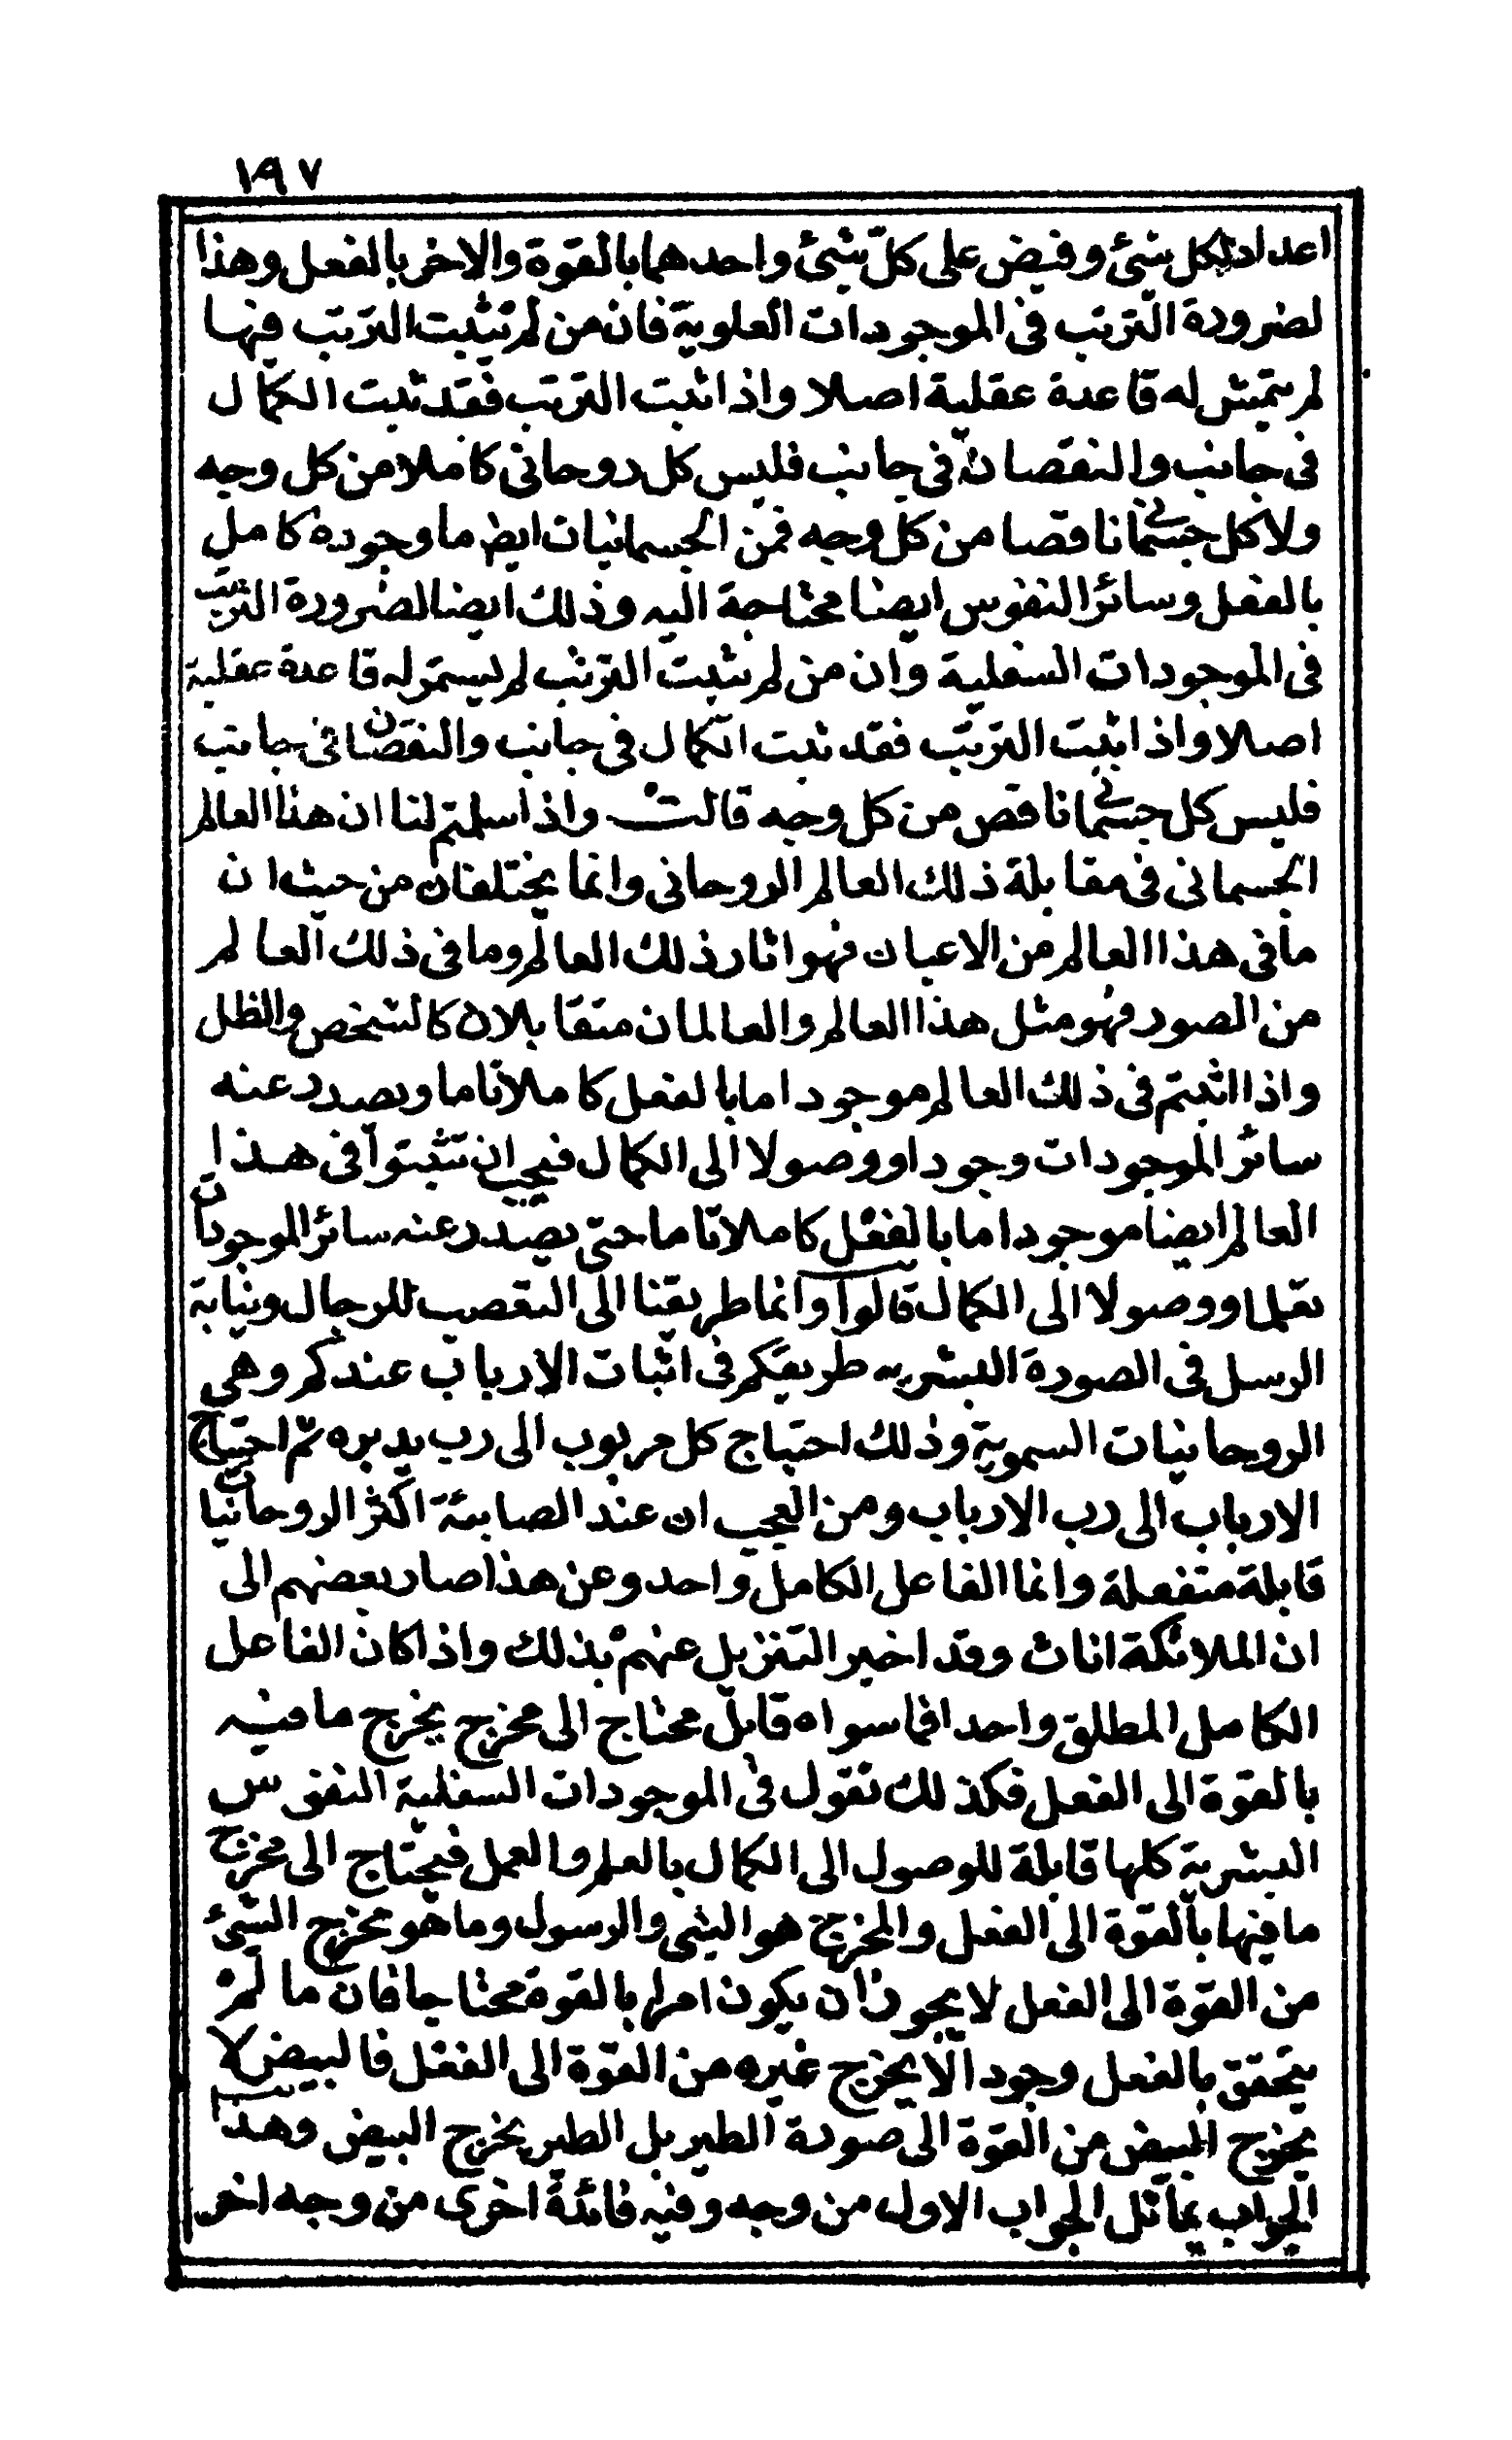 ١٩٧
اعداد لكل شئ وفيض على كلّ شئ واحدهما بالقوة والاخر بالفعل وهذا
لضرورة الترتب فى الموجودات العلوية فان من لم يثبت الترتب فيها
لم يتمش له قاعدة عقلية اصلا واذا اثبت الترتب فقد ثبت الكمال
فى جانب والنقصان فى جانب فليس كل روحانى كاملا من كل وجه
ولا كل جسمانى ناقصا من كل وجه فمن الجسمانيات ايضا ما وجوده كامل
بالفعل وسائر النفوس ايضا محتاجة اليه وذلك ايضا لضرورة الترتب
فى الموجودات السفلية وان من لم يثبت الترتب لم يستمر له قاعدة عقلية
اصلا واذا اثبت الترتب فقد ثبت الكمال فى جانب والنقصان فى جانب
فليس كل جسمانى ناقص من كل وجه قالت واذا سلمتم لنا ان هذا العالم
الجسمانى فى مقابلة ذلك العالم الروحانى وانما يختلفان من حيث ان
ما فى هذا العالم من الاعيان فهو اثار ذلك العالم وما فى ذلك العالم
من الصور فهو مثل هذا العالم والعالمان متقابلان كالشخص والظل
واذا اثبتم فى ذلك العالم موجودا ما بالفعل كاملا تاما ويصدر عنه
سائر الموجودات وجودا ووصولا الى الكمال فيجب ان تثبتوا فى هذا
العالم ايضا موجودا ما بالفعل كاملا تاما حتى يصدر عنه سائر الموجودات
تعلما ووصولا الى الكمال قالوا وانما طريقنا الى التعصب للرجال ونيابة
الرسل فى الصورة البشريه طريقكم فى اثبات الارباب عندكم وهى
الروحانيات السموية وذلك احتياج كل مربوب الى رب يدبره ثم احتياج
الارباب الى رب الارباب ومن العجب ان عند الصابئة اكثر الروحانيات
قابلة منفعلة وانما الفاعل الكامل واحد وعن هذا صار بعضهم الى
ان الملائكة اناث وقد اخبر التنزيل عنهم بذلك واذا كان الفاعل
الكامل المطلق واحدا فما سواه قابل محتاج الى مخرج يخرج ما فيه
بالقوة الى الفعل فكذلك نقول فى الموجودات السفلية النفوس
البشرية كلها قابلة للوصول الى الكمال بالعلم والعمل فيحتاج الى مخرج
ما فيها بالقوة الى الفعل والمخرج هو النبى والرسول وما هو مخرج الشئ
من القوة الى الفعل لا يجوز ان يكون امرا بالقوة محتاجا فان ما لم
يتحقق بالفعل وجودا لا يخرج غيره من القوة الى الفعل فالبيض لا
يخرج البيض من القوة الى صورة الطير بل الطير يخرج البيض وهذا
الجواب يماثل الجواب الاول من وجه وفيه فائدة اخرى من وجه اخر